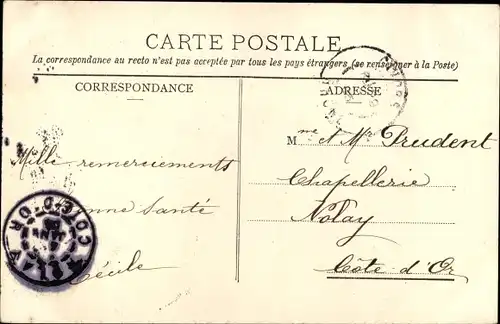 CARTE POSTALE
La correspondance au recto n'est pas acceptée par tous les pays étrangers (se renseigner à la Poste)
CORRESPONDANCE
ADRESSE
Mille remerciements
Santé
Cécile
Mme et Mr Prudent
Chapellerie
Nolay
Côte d'Or
CÔTE-D'OR